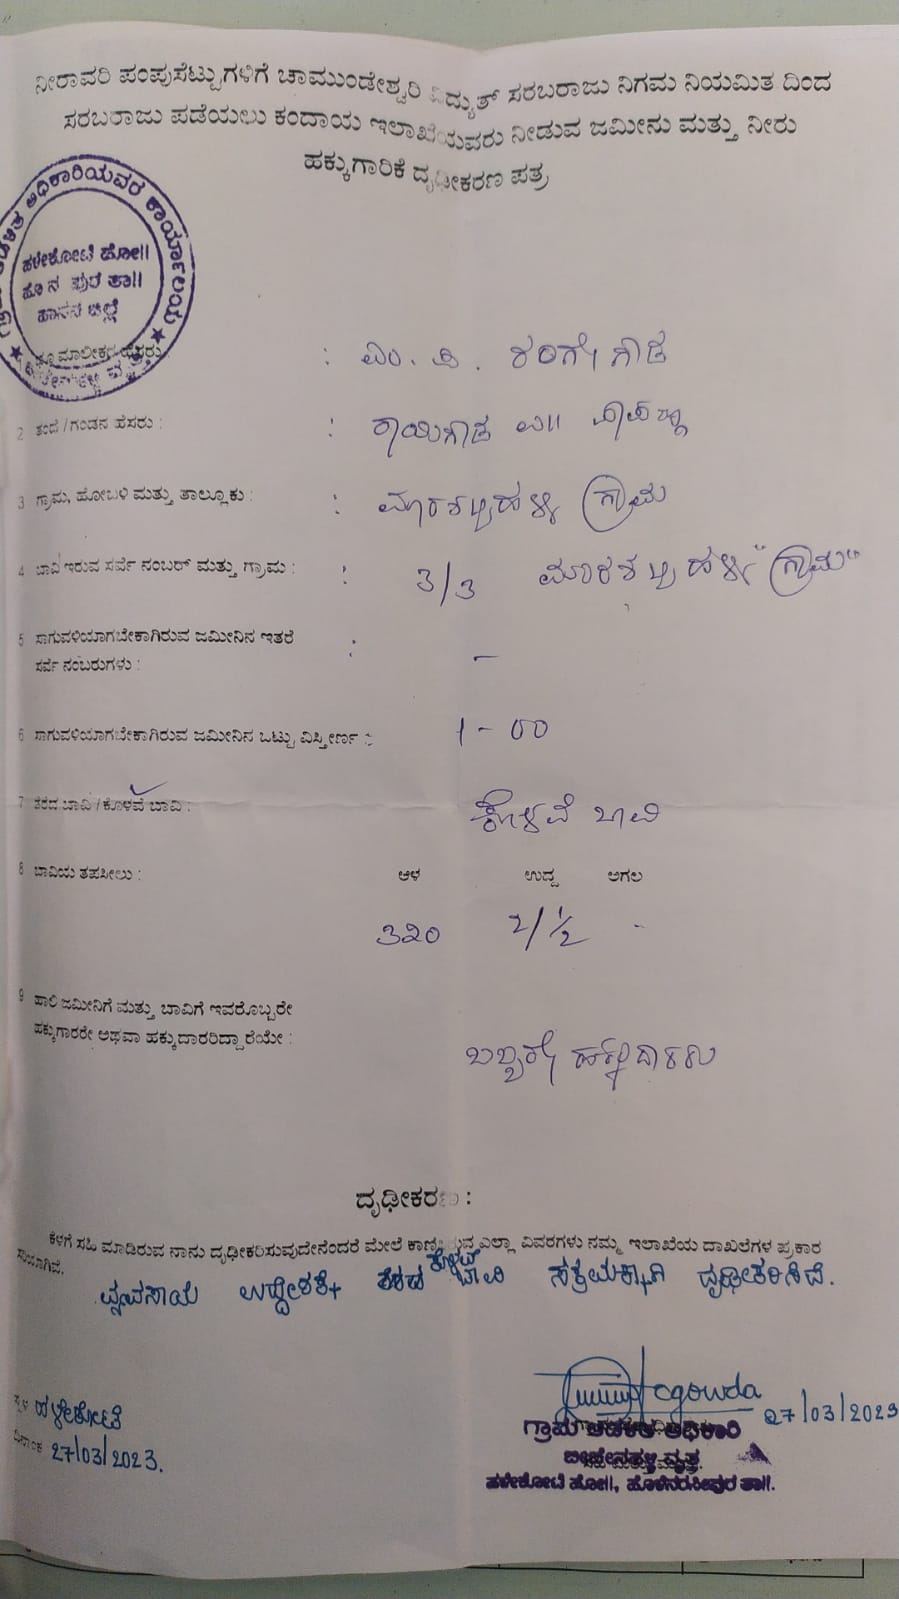 ನೀರಾವರಿ ಪಂಪುಸೆಟ್ಟುಗಳಿಗೆ ಚಾಮುಂಡೇಶ್ವರಿ ವಿದ್ಯುತ್ ಸರಬರಾಜು ನಿಗಮ ನಿಯಮಿತ ದಿಂದ
ಸರಬರಾಜು ಪಡೆಯಲು ಕಂದಾಯ ಇಲಾಖೆಯವರು ನೀಡುವ ಜಮೀನು ಮತ್ತು ನೀರು
ಹಕ್ಕುಗಾರಿಕೆ ದೃಢೀಕರಣ ಪತ್ರ
ಅಧಿಕಾರಿಯವರ ಕಾರ್ಯಾಲಯ
ಹಳೇಕೋಟೆ ಹೋ||
ಹೊನಪುರ ತಾ||
ಹಾಸನ ಜಿಲ್ಲೆ
ಭೂಮಾಲೀಕರ ಹೆಸರು : ಎಂ. ಪಿ. ರಂಗೇಗೌಡ
2 ತಂದೆ/ಗಂಡನ ಹೆಸರು : :
3 ಗ್ರಾಮ, ಹೋಬಳಿ ಮತ್ತು ತಾಲ್ಲೂಕು : : ಗ್ರಾಮ
4 ಬಾವಿ ಇರುವ ಸರ್ವೆ ನಂಬರ್ ಮತ್ತು ಗ್ರಾಮ : : 3/3 "ಗ್ರಾಮ"
5 ಸಾಗುವಳಿಯಾಗಬೇಕಾಗಿರುವ ಜಮೀನಿನ ಇತರೆ :
ಸರ್ವೆ ನಂಬರುಗಳು : –
6 ಸಾಗುವಳಿಯಾಗಬೇಕಾಗಿರುವ ಜಮೀನಿನ ಒಟ್ಟು ವಿಸ್ತೀರ್ಣ : 1-00
7 ತೆರೆದ ಬಾವಿ/ಕೊಳವೆ ಬಾವಿ : ಕೊಳವೆ ಬಾವಿ
8 ಬಾವಿಯ ತಪಸೀಲು : ಆಳ ಉದ್ದ ಅಗಲ
320 2/½ -
9 ಹಾಲಿ ಜಮೀನಿಗೆ ಮತ್ತು ಬಾವಿಗೆ ಇವರೊಬ್ಬರೇ
ಹಕ್ಕುಗಾರರೇ ಅಥವಾ ಹಕ್ಕುದಾರರಿದ್ದಾರೆಯೇ :
ಒಬ್ಬರೇ ಹಕ್ಕುದಾರರು
ದೃಢೀಕರಣ :
ಕೆಳಗೆ ಸಹಿ ಮಾಡಿರುವ ನಾನು ದೃಢೀಕರಿಸುವುದೇನೆಂದರೆ ಮೇಲೆ ಕಾಣಿಸಿರುವ ಎಲ್ಲಾ ವಿವರಗಳು ನಮ್ಮ ಇಲಾಖೆಯ ದಾಖಲೆಗಳ ಪ್ರಕಾರ
ಸರಿಯಾಗಿದೆ.
ವ್ಯವಸಾಯ ಉದ್ದೇಶಕ್ಕೆ ಕೊಳವೆ ಬಾವಿ ಸಕ್ರಮಕ್ಕಾಗಿ ದೃಢೀಕರಿಸಿದೆ.
27/03/2023
ಸ್ಥಳ ಹಳೇಕೋಟೆ
ದಿನಾಂಕ 27/03/2023.
ಗ್ರಾಮ ಆಡಳಿತ ಅಧಿಕಾರಿ
ವೃತ್ತ.
ಹಳೇಕೋಟೆ ಹೋ||, ಹೊಳೆನರಸೀಪುರ ತಾ||.